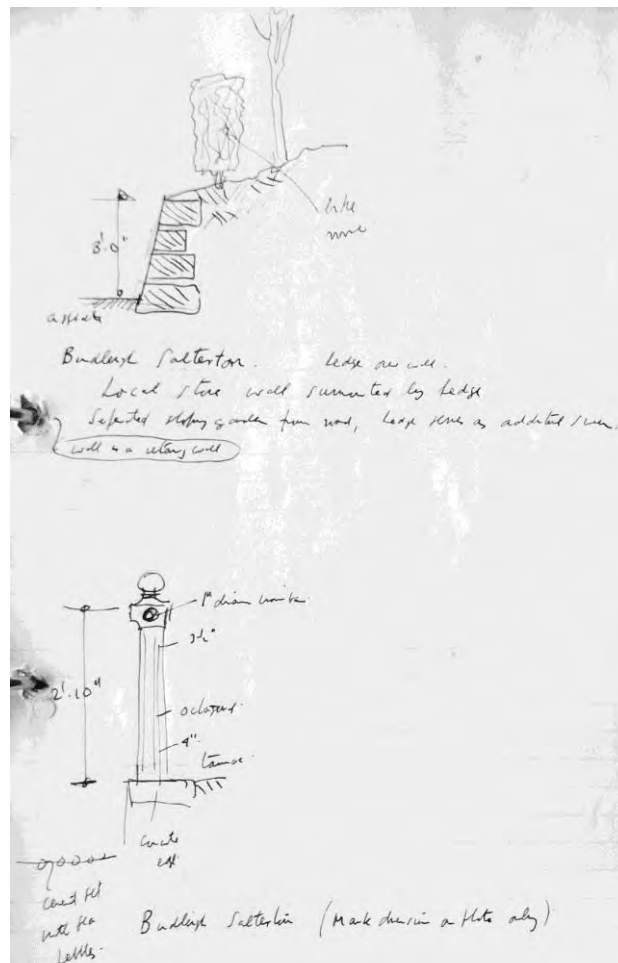 8'.0"
asphalt
Budleigh Salterton. hedge over wall.
Local stone wall surmounted by hedge
Separated sloping garden from road, hedge serves as additional screen.
wall is a retaining wall
1" diam
3½"
2'.10"
octagonal.
4"
tarmac.
concrete
cement set
with sea
pebbles.
Budleigh Salterton (Mark dimension on photo only)